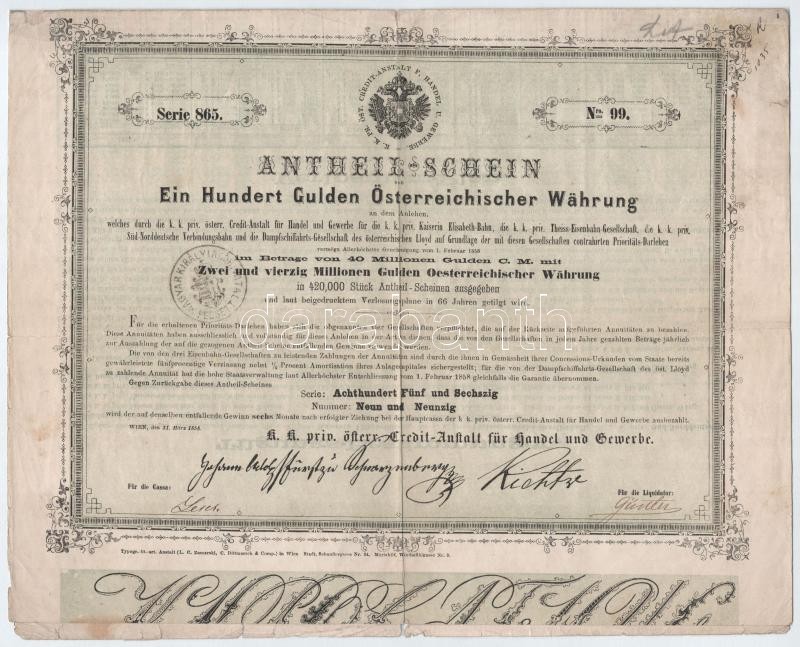 K. K. PR. ÖST. CREDIT-ANSTALT F. HANDEL U. GEWERBE.
Serie 865.
Nro. 99.
ANTHEIL-SCHEIN
VON
Ein Hundert Gulden Österreichischer Währung
an dem Anlehen,
welches durch die k. k. priv. österr. Credit-Anstalt für Handel und Gewerbe für die k. k. priv. Kaiserin Elisabeth-Bahn, die k. k. priv. Theiss-Eisenbahn-Gesellschaft, die k. k. priv.
Süd-Norddeutsche Verbindungsbahn und die Dampfschiffahrts-Gesellschaft des österreichischen Lloyd auf Grundlage der mit diesen Gesellschaften contrahirten Prioritäts-Darlehen
vermöge Allerhöchster Genehmigung vom 1. Februar 1858
im Betrage von 40 Millionen Gulden C. M. mit
Zwei und vierzig Millionen Gulden Oesterreichischer Währung
in 420,000 Stück Antheil-Scheinen ausgegeben
und laut beigedrucktem Verlosungsplane in 66 Jahren getilgt wird.
Für die erhaltenen Prioritäts-Darlehen haben sich die obgenannten vier Gesellschaften verpflichtet, die auf der Rückseite aufgeführten Annuitäten zu bezahlen.
Diese Annuitäten haben ausschliesslich zur der Art, dass die von denselben in jedem Jahre gezahlten Beträge jährlich
zur Auszahlung der auf die gezogenen Antheil-Scheine entfallenden Gewinne verwendet werden.
Die von den drei Eisenbahn-Gesellschaften zu leistenden Zahlungen der Annuitäten sind durch die ihnen in Gemässheit ihrer Concessions-Urkunden vom Staate bereits
gewährleistete fünfprocentige Verzinsung nebst Percent Amortisation ihres Anlagscapitals sichergestellt; für die von der Dampfschiffahrts-Gesellschaft des öst. Lloyd
zu zahlende Annuität hat die hohe Staatsverwaltung laut Allerhöchster Entschliessung vom 1. Februar 1858 gleichfalls die Garantie übernommen.
Gegen Zurückgabe dieses Antheil-Scheines
Serie: Achthundert Fünf und Sechszig
Nummer: Neun und Neunzig
wird der auf denselben entfallende Gewinn sechs Monate nach erfolgter Ziehung bei der Hauptcassa der k. k. priv. österr. Credit-Anstalt für Handel und Gewerbe ausbezahlt.
WIEN, den 11. März 1858.
K. K. priv. österr. Credit-Anstalt für Handel und Gewerbe.
Johann Adolf Fürst zu Schwarzenberg
Richter
Für die Cassa:
Für die Liquidatur:
Typogr.-lit.-art. Anstalt (L. C. Zamarski, C. Dittmarsch & Comp.) in Wien
darabanth.com